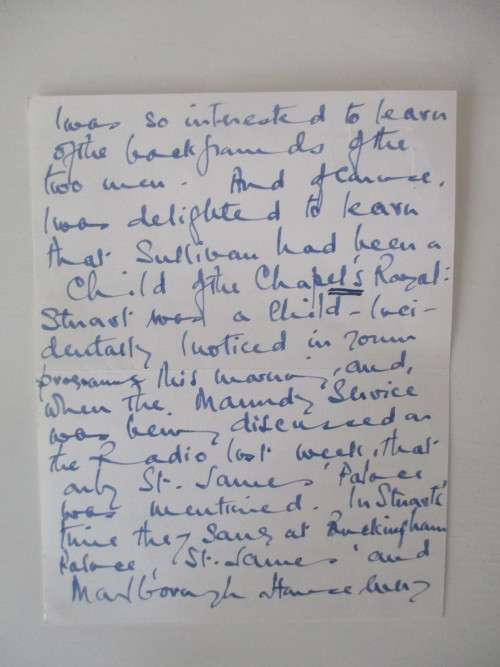 I was so interested to learn
of the backgrounds of the
two men. And of course,
I was delighted to learn
that Sullivan had been a
Child of the Chapel's Royal:
Stuart was a Child - Inci-
dentally I noticed in your
programme this morning, and,
when the Maundy Service
was being discussed on
the Radio last week, that
only St. James' Palace
was mentioned. In Stuart's
time they sang at Buckingham
Palace, St. James' and
Marlborough House every